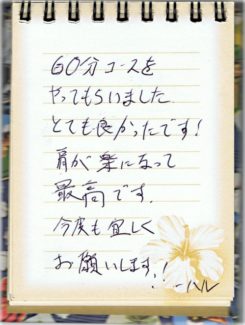 60分コースを
やってもらいました
とても良かったです!
肩が楽になって
最高です.
今度も宜しく
お願いします!!
-ハル